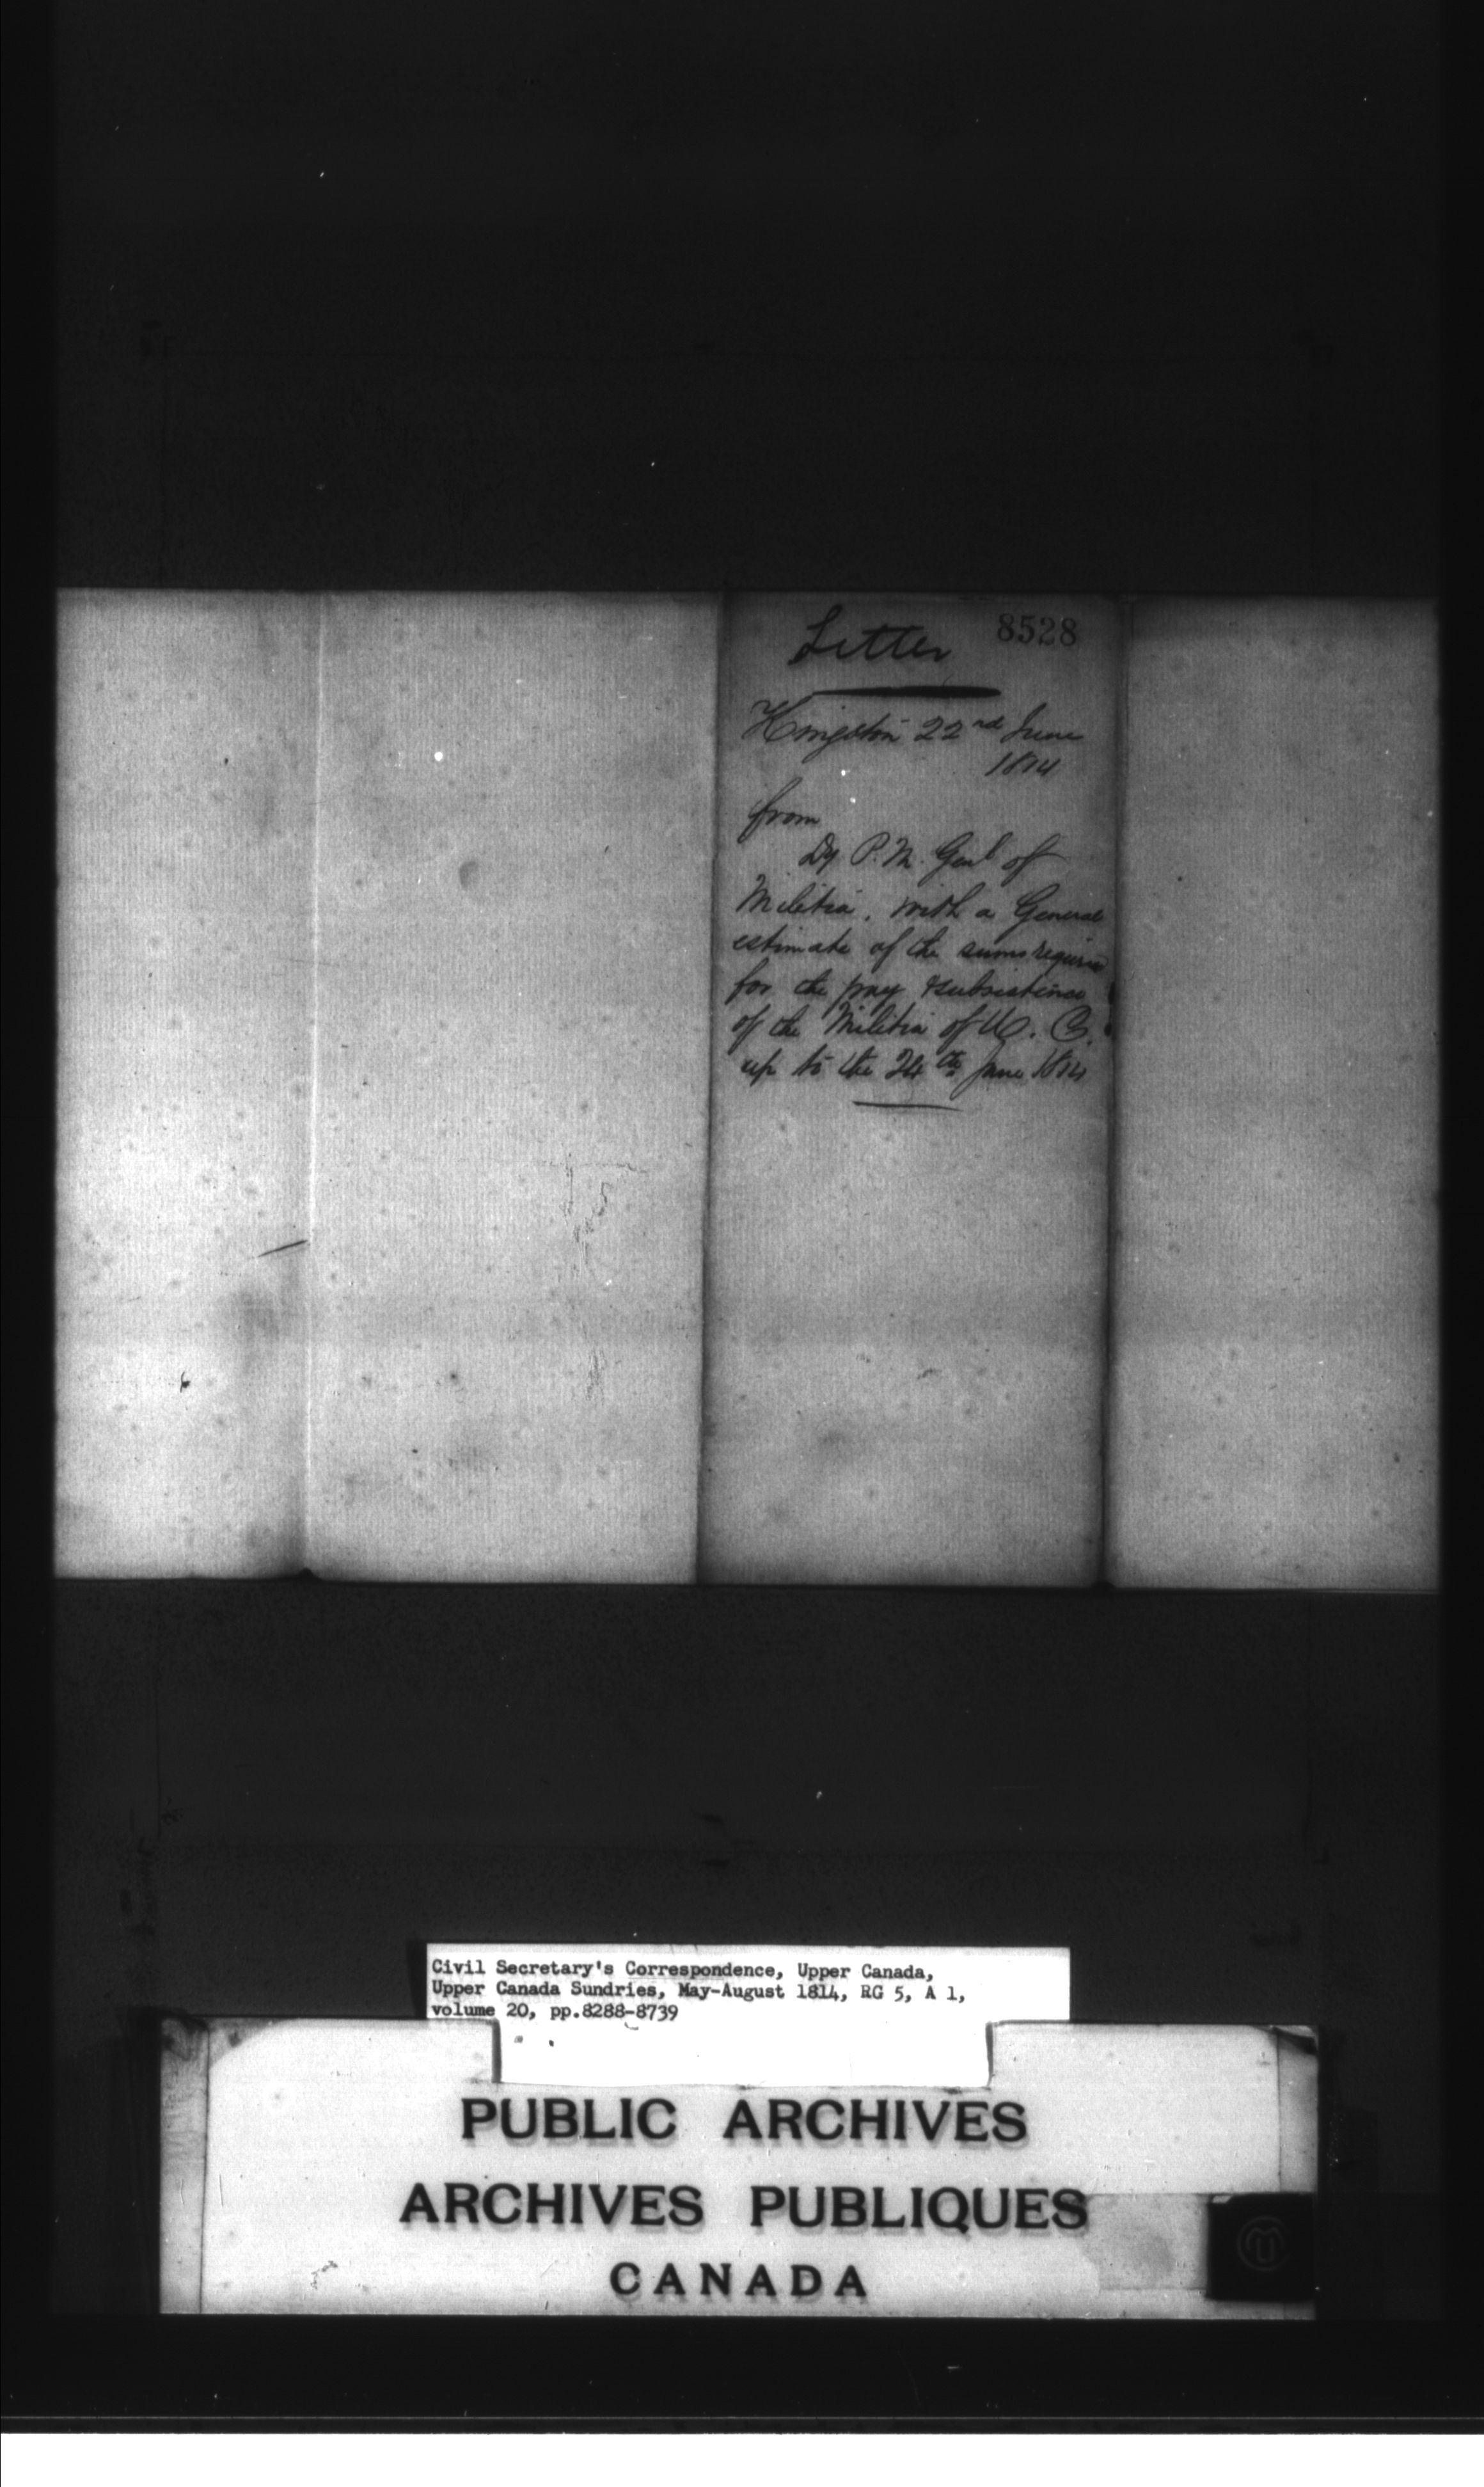 Letter 8528
Kingston 22nd June
1814
from
Dy P. M. Genl of
Militia, with a General
estimate of the sums required
for the pay & subsistence
of the Militia of U. C.
up to the 24th June 1814
Civil Secretary's Correspondence, Upper Canada,
Upper Canada Sundries, May-August 1814, RG 5, A 1,
volume 20, pp.8288-8739
PUBLIC ARCHIVES
ARCHIVES PUBLIQUES
CANADA